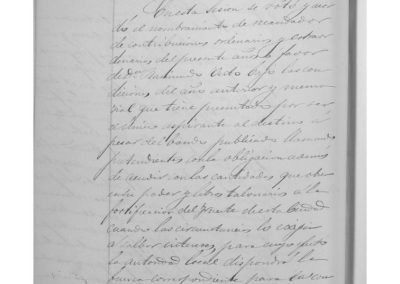 En esta sesion se votó y acor
dó el nombramiento de recaudador
de contribuciones ordinarias y estraor
dinarias del presente año a favor
de Dn. Raimundo bajo las con
diciones del año anterior y memo
rial que tiene presentado por ser
el único aspirante al destino á
pesar de bandos publicados llamando
pretendientes con la obligacion ademas
de acudir con las cantidades que obren
en su poder y libros talonarios á la
fortificacion del fuerte de esta Ciudad
cuando las circunstancias lo exijan
para cuyo efecto
la autoridad local dispondrá la
fuerza correspondiente para